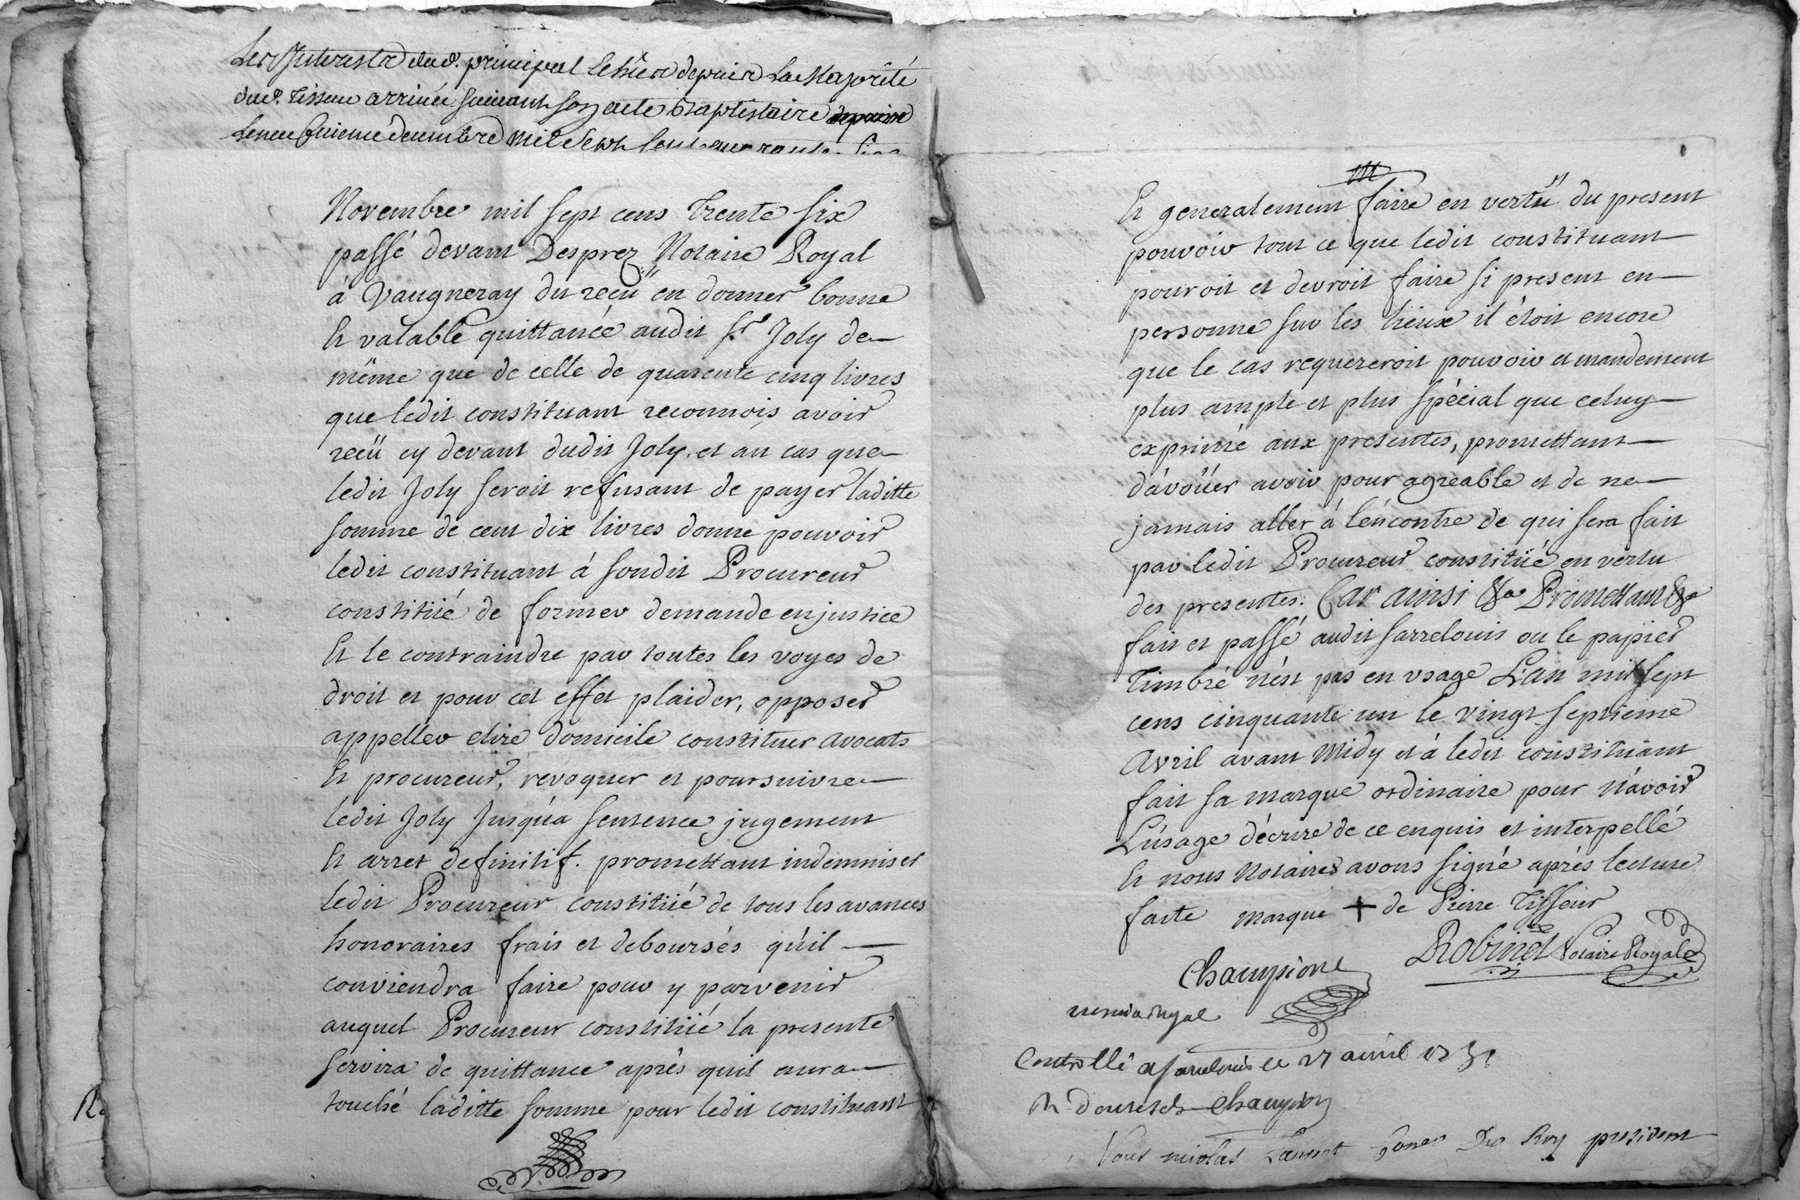 Les Interests dud. principal echües depuis La Majorité
dud. tisseur arrivée suivant son acte Baptistaire
Le neufvieme decembre mil sept Cent quarante
Novembre mil sept cens trente six
passé devant Desprez Notaire Royal
à Vaugneray du recü en donner bonne
Et valable quittancée audit Sr. Joly de
même que de celle de quarente cinq livres
que ledit constituant reconnois avoir
recü cy devant dudit Joly. et au cas que
ledit Joly seroit refusant de payer laditte
somme de cent dix livres donne pouvoir
ledit constituant á sondit Procureur
constitüé de former demande en justice
Et le contraindre par toutes les voyes de
droit et pour cet effet plaider, opposer
appeller elire domicile constituer avocats
Et procureur, revoquer et poursuivre
ledit Joly Jusqu'a sentence jugement
Et arret definitif. promettant indemniser
ledit Procureur constitüé de tous les avances
honoraires frais et deboursés qu'il
conviendra faire pour y parvenir
auquel Procureur constitüé la presente
servira de quittance après quil aura
touché laditte somme pour ledit constituant
Et generalement faire en vertü du present
pouvoir tout ce que ledit constituant
pouroit et devroit faire si present en
personne sur les lieux il étoit encore
que le cas requereroit pouvoir et mandement
plus ample et plus spécial que celuy
exprimé aux presentes, promettant
d'avoüer avoir pour agreable et de ne
jamais aller á l'encontre de qui sera fait
par ledit Procureur constitüé en vertu
des presentes. Car ainsi &a Promettant &a
fait et passé audit Sarrelouis ou le papier
timbré n'est pas en usage L'an mil sept
cens cinquante un le vingt septieme
Avril avant Midy et á ledit constituant
fait sa marque ordinaire pour n'avoir
L'úsage d'écrire de ce enquis et interpellé
Et nous Notaires avons signé après lecture
faite marque + de Pierre Tisseur
Championt Robinet Notaire Royale
Controllé a Sarelouis le 27 avril 1751
Nous nicolas Laurent Coner Du Roy president